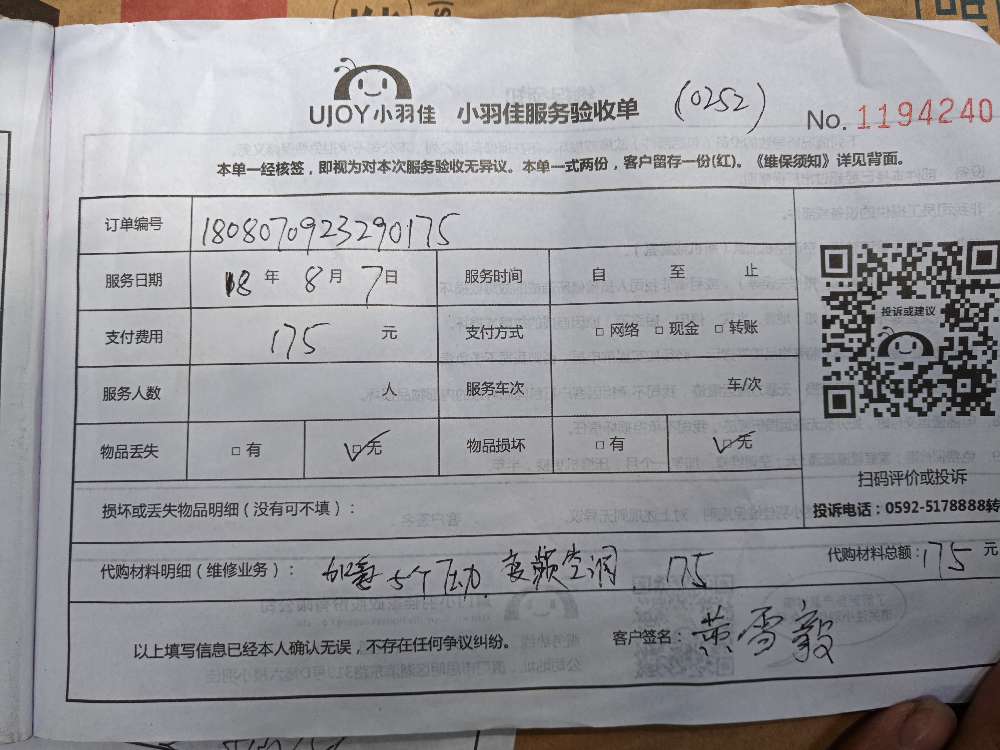 UJOY小羽佳 小羽佳服务验收单 (0252) No. 1194240
本单一经核签，即视为对本次服务验收无异议。本单一式两份，客户留存一份(红)。《维保须知》详见背面。
订单编号 1808070923290175
服务日期 18 年 8 月 7 日 服务时间 自 至 止
支付费用 175 元 支付方式 □ 网络 □ 现金 □ 转账
投诉或建议
服务人数 人 服务车次 车/次
物品丢失 □ 有 ☑ 无 物品损坏 □ 有 ☑ 无
扫码评价或投诉
损坏或丢失物品明细（没有可不填）：
投诉电话：0592-5178888转
代购材料明细（维修业务）： 加氟 5个压力 变频空调 175 代购材料总额：175 元
以上填写信息已经本人确认无误，不存在任何争议纠纷。 客户签名：黄雪毅